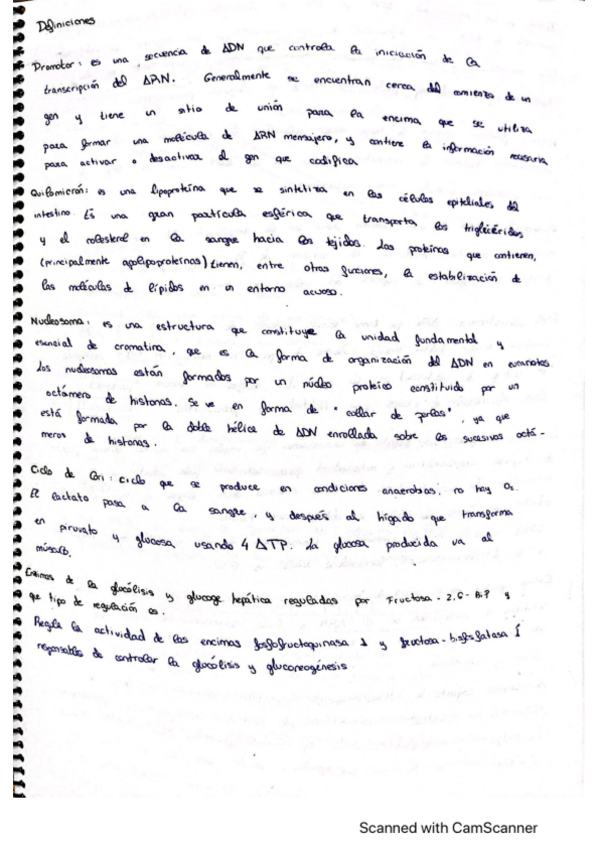 Definiciones
Promotor: es una secuencia de ADN que controla la iniciación de la
transcripción del ARN. Generalmente se encuentran cerca del comienzo de un
gen y tiene un sitio de unión para la encima que se utiliza
para formar una molécula de ARN mensajero, y contiene la información necesaria
para activar o desactivar el gen que codifica
Quilomicrón: es una lipoproteína que se sintetiza en las células epiteliales del
intestino. Es una gran partícula esférica que transporta los triglicéridos
y el colesterol en la sangre hacia los tejidos. Las proteínas que contienen,
(principalmente apolipoproteínas) tienen, entre otras funciones, la estabilización de
las moléculas de lípidos en un entorno acuoso.
Nucleosoma: es una estructura que constituye la unidad fundamental y
esencial de cromatina, que es la forma de organización del ADN en eucariotas.
Los nucleosomas están formados por un núcleo proteico constituido por un
octámero de histonas. Se ve en forma de "collar de perlas", ya que
está formada por la doble hélice de ADN enrollada sobre los sucesivos octá-
meros de histonas.
Ciclo de Cori: ciclo que se produce en condiciones anaerobias, no hay O2
El lactato pasa a la sangre, y después al hígado que transforma
en piruvato y glucosa usando 4 ATP. La glucosa producida va al
músculo.
Encimas de la glucólisis y glucoge hepática reguladas por Fructosa-2,6-BiP y
que tipo de regulación es.
Regula la actividad de las encimas fosfofructoquinasa 1 y fructosa-bisfosfatasa 1
responsables de controlar la glucólisis y gluconeogénesis.
Scanned with CamScanner